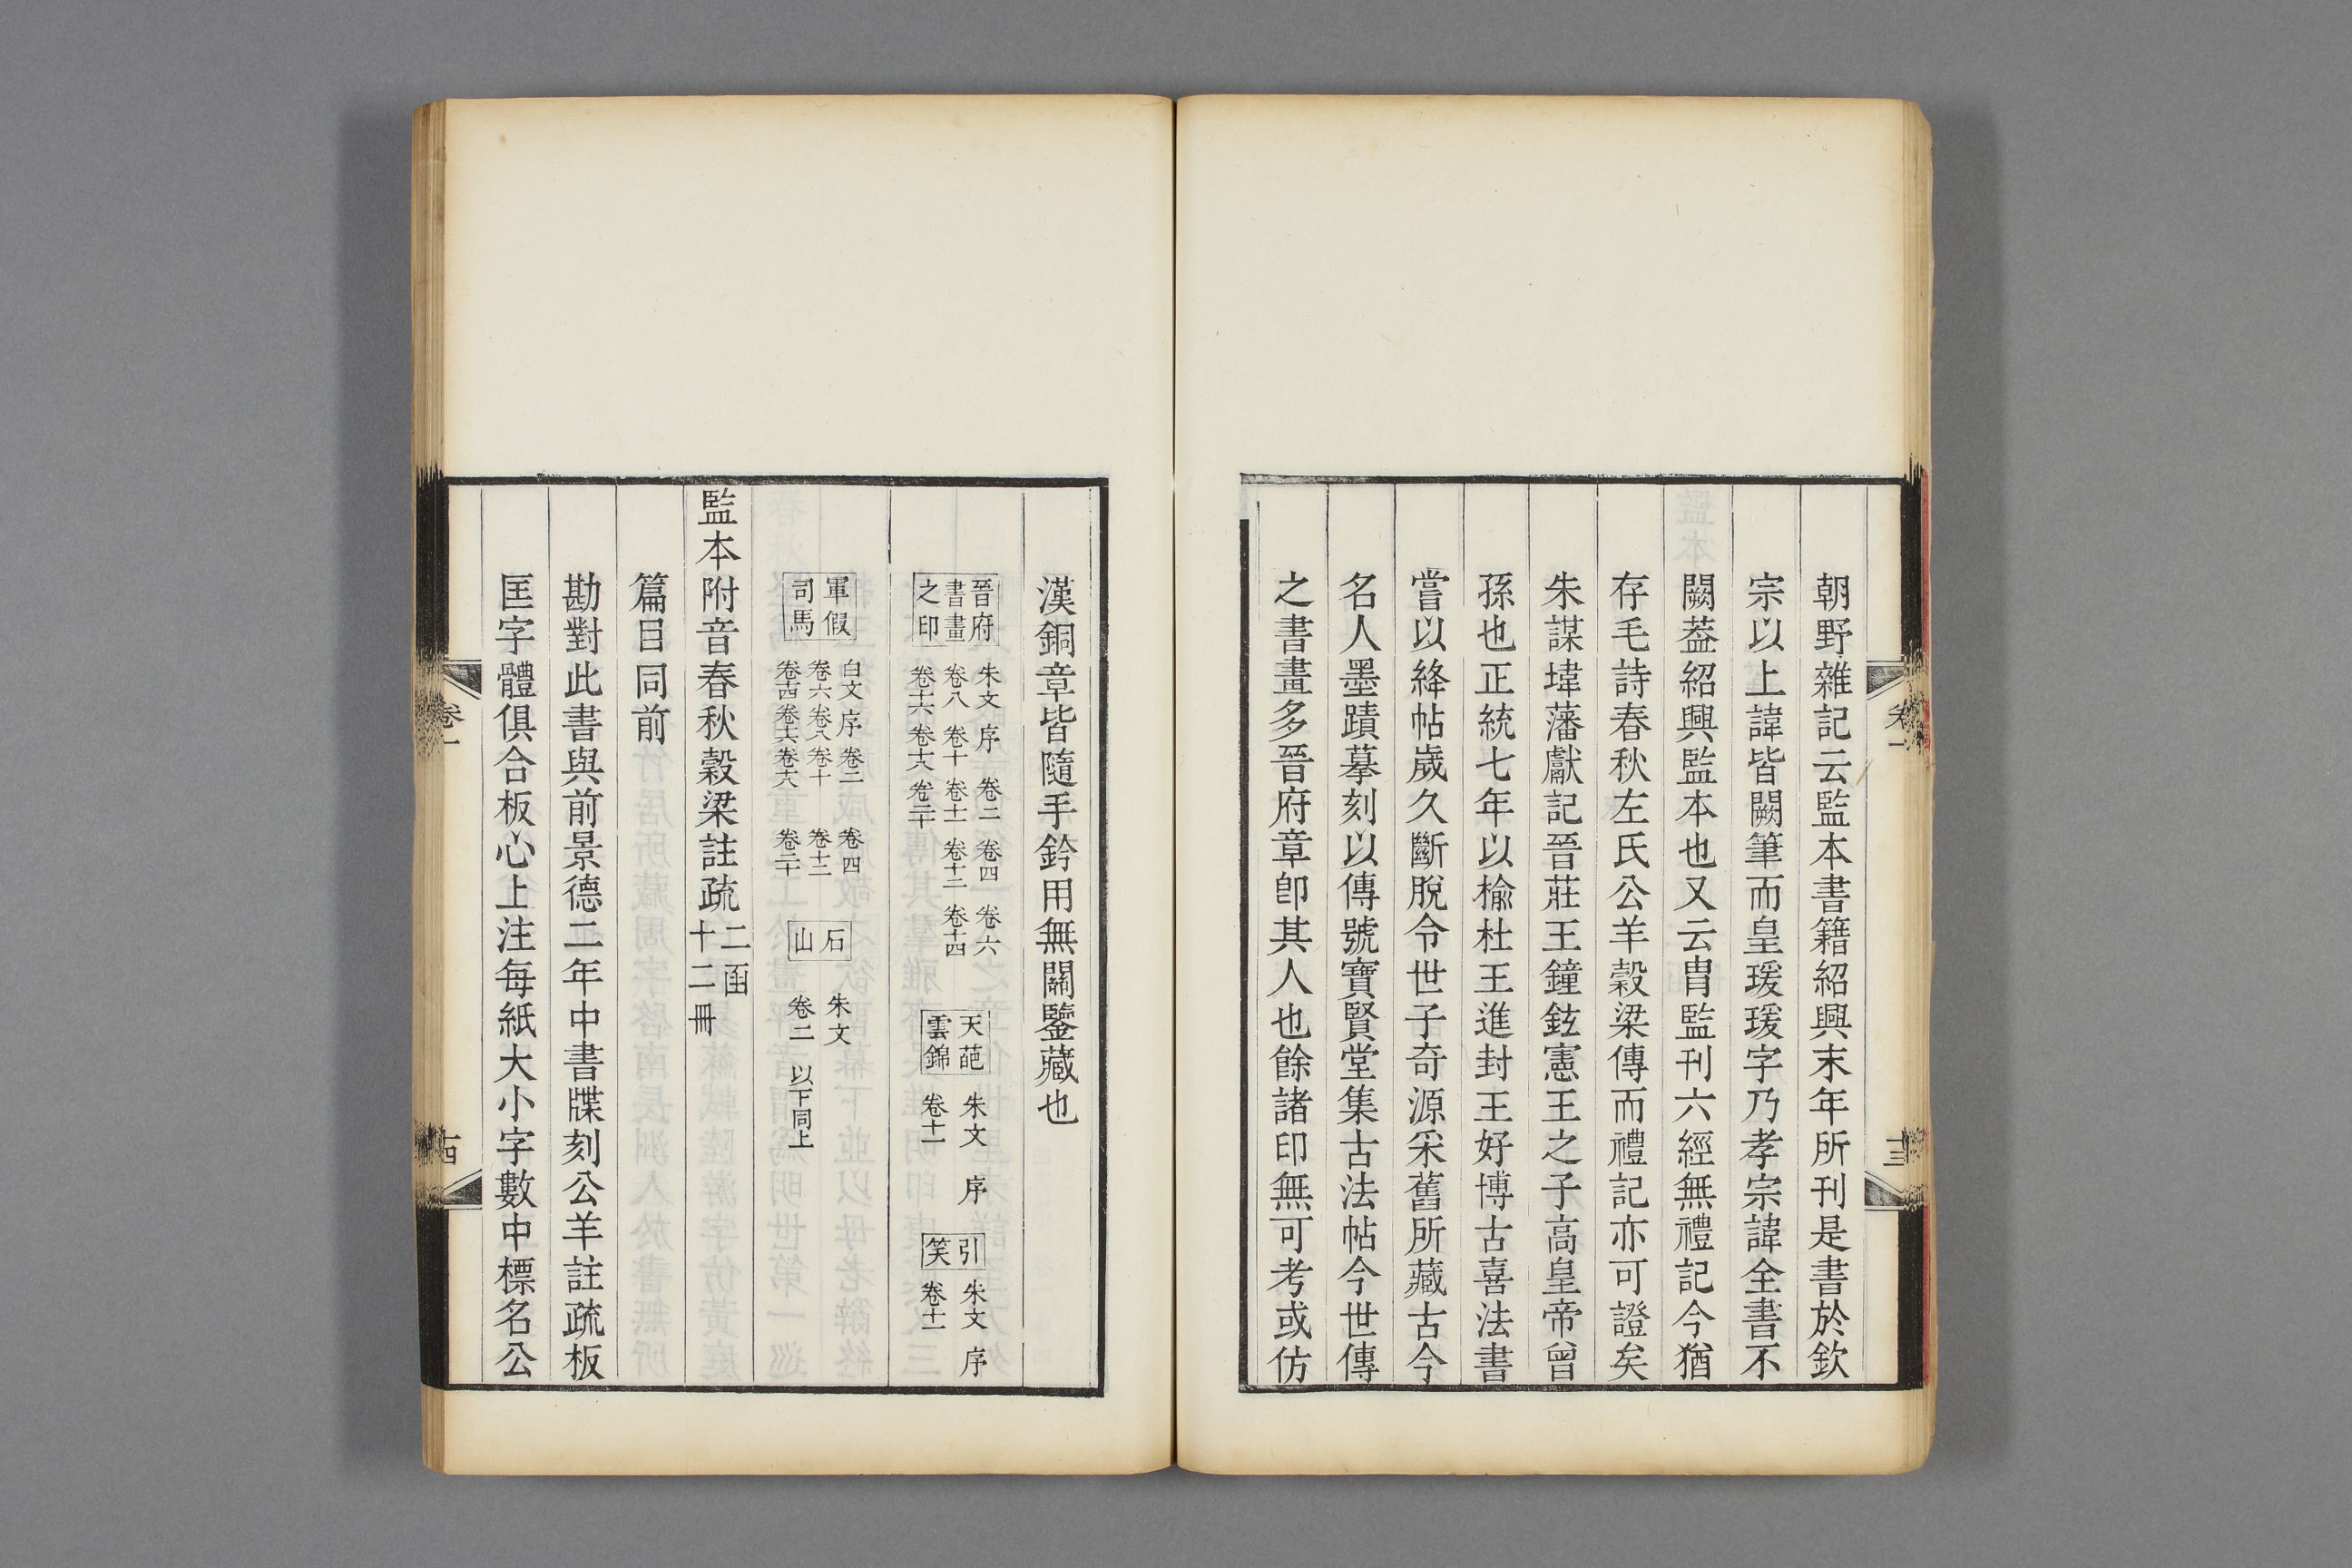 朝野雜記云監本書籍紹興末年所刊是書於欽
宗以上諱皆闕筆而皇瑗瑗字乃孝宗諱全書不
闕葢紹興監本也又云胄監刊六經無禮記今猶
存毛詩春秋左氏公羊穀梁傳而禮記亦可證矣
朱謀㙔藩獻記晉莊王鐘鉉憲王之子高皇帝曾
孫也正統七年以榆杜王進封王好博古喜法書
嘗以絳帖歲久斷脫令世子奇源采舊所藏古今
名人墨蹟摹刻以傳號寶賢堂集古法帖今世傳
之書畫多晉府章卽其人也餘諸印無可考或仿
卷一
十三
漢銅章皆隨手鈐用無關鑒藏也
晉府
書畫
之印
朱文 序 卷二 卷四 卷六
卷八 卷十 卷十一 卷十二 卷十四
卷十六 卷十八 卷二十
天葩
雲錦
朱文 序
卷十一
引
笑
朱文 序
卷十一
軍假
司馬
白文 序 卷二 卷四
卷六 卷八 卷十 卷十二
卷十四 卷十六 卷十八 卷二十
石
山
朱文
卷二 以下同上
監本附音春秋穀梁註疏二函
十二冊
篇目同前
勘對此書與前景德二年中書牒刻公羊註疏板
匡字體俱合板心上注每紙大小字數中標名公
卷一
十四